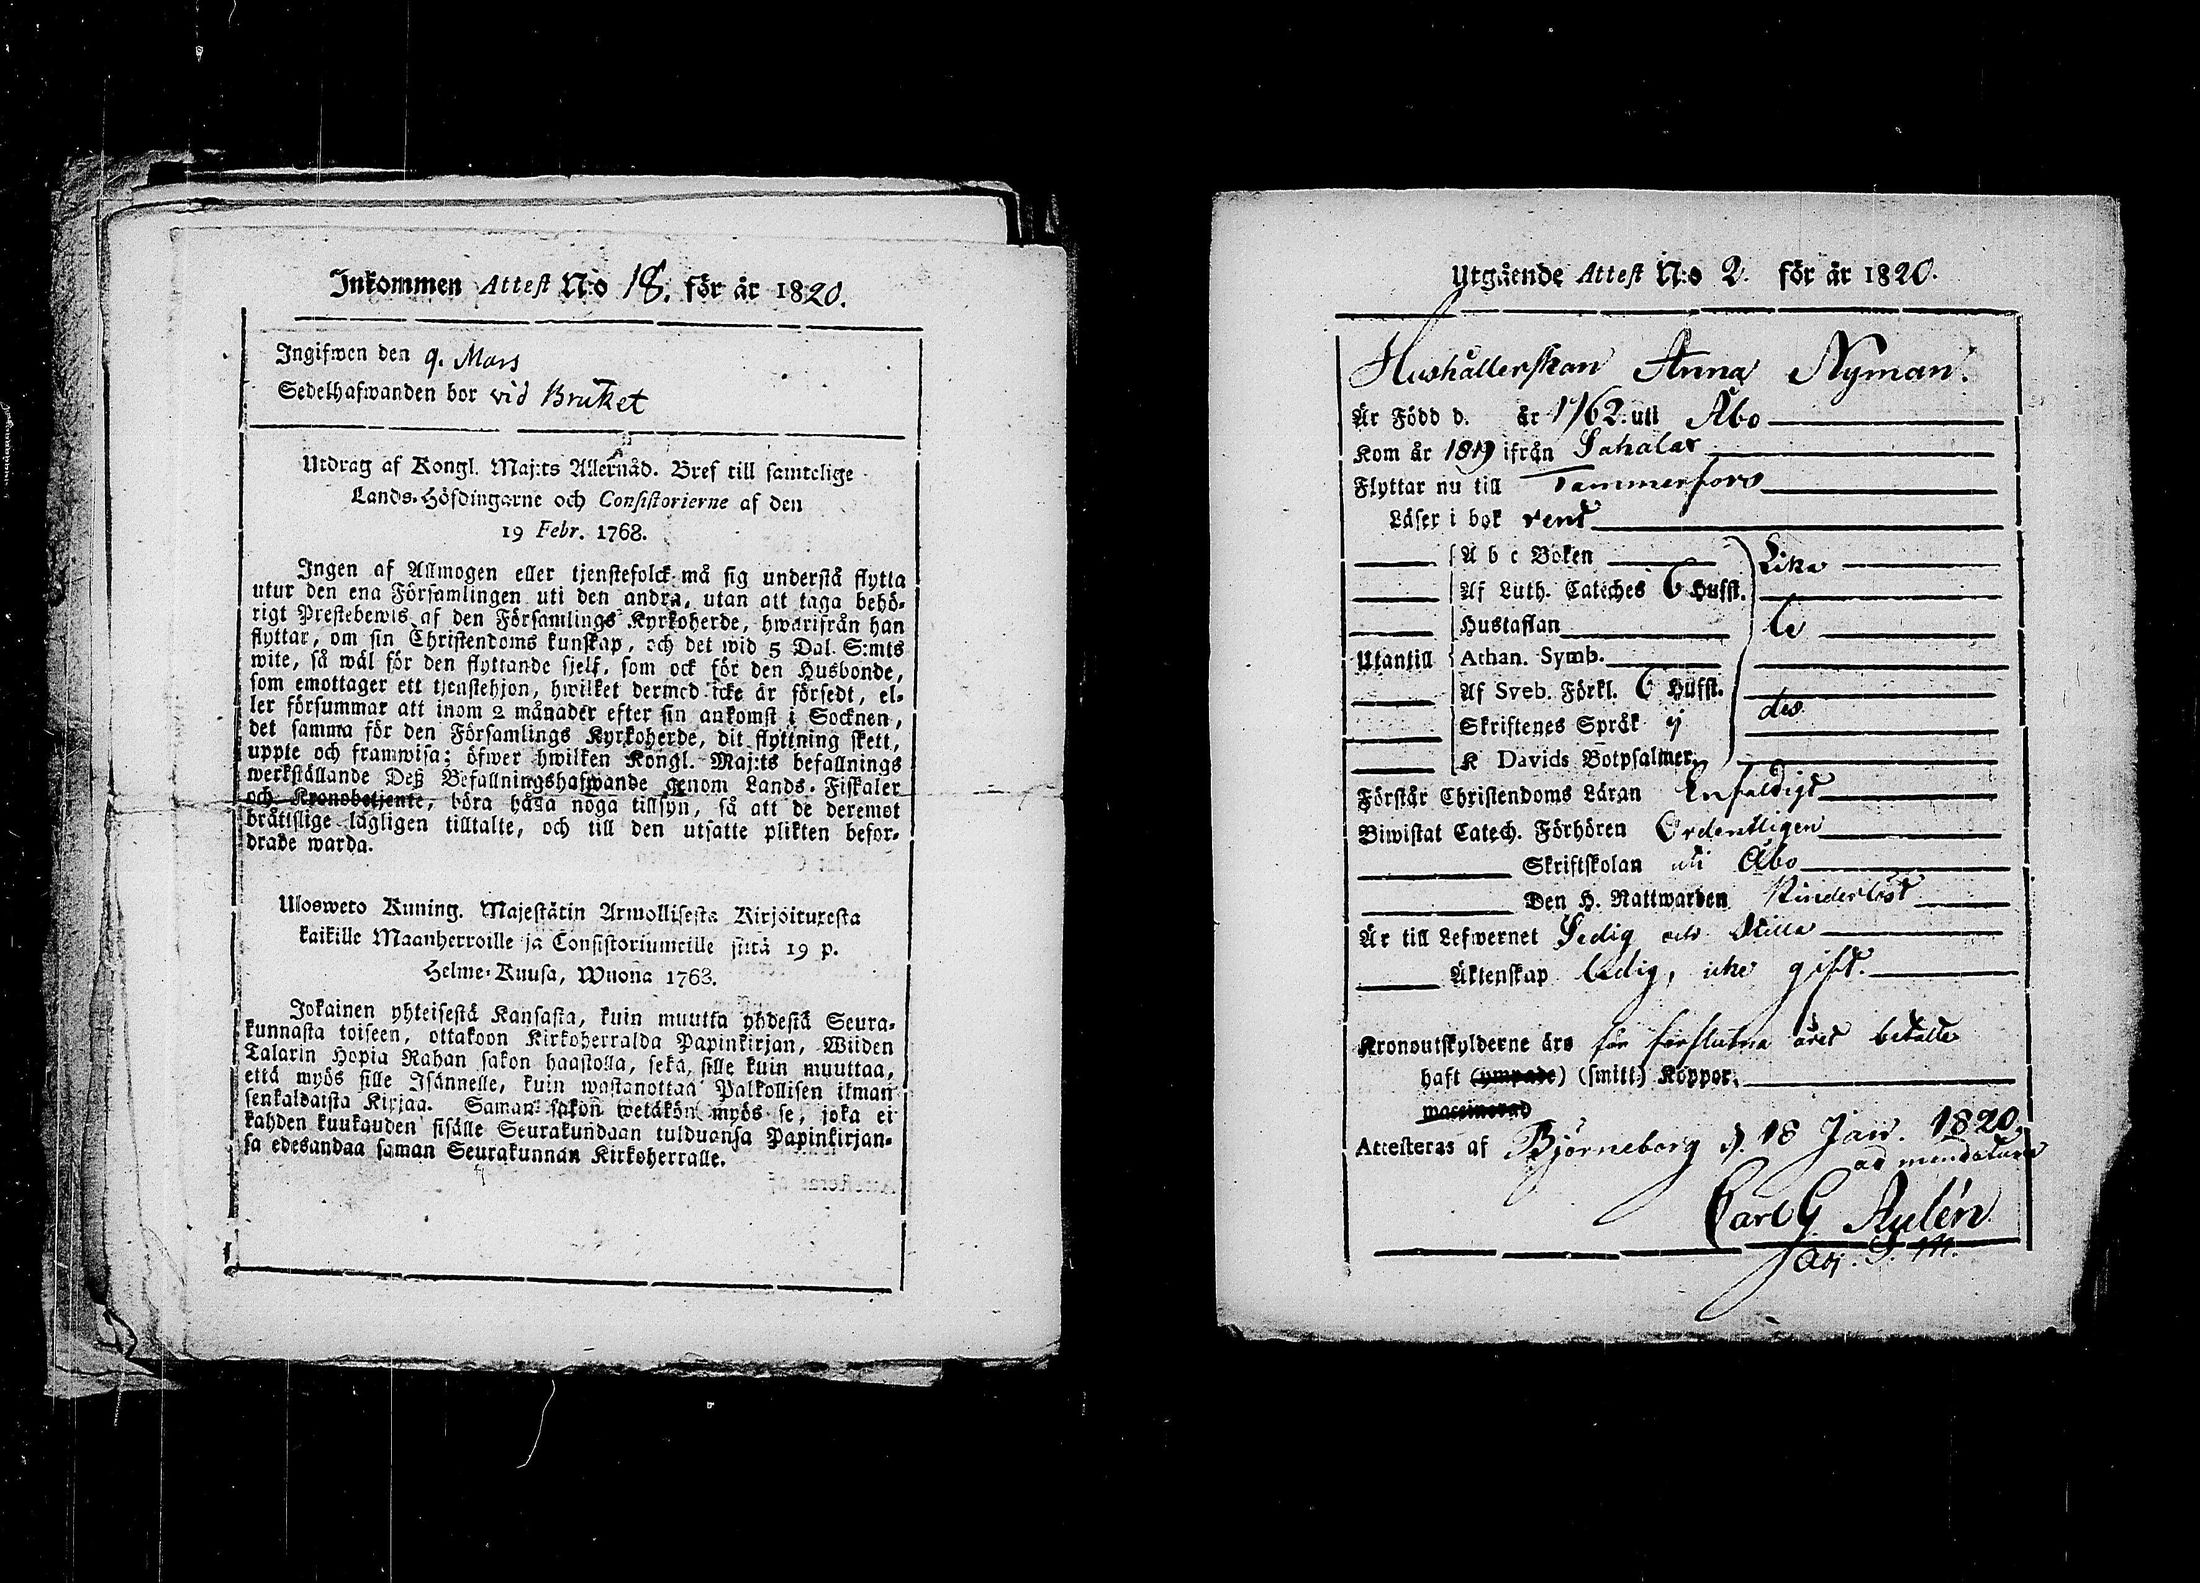 Inkommen Attest N:o 18. för år 1820.
Ingifwen den 9. Mars
Sedelhafwanden bor vid Bruket
Utdrag af Kongl. Maj:ts Allernåd. Bref till samtelige
Lands-Höfdingarne och Consistorierne af den
19 Febr. 1768.
Ingen af Allmogen eller tjenstefolck må sig understå flytta
utur den ena Församlingen uti den andra, utan att taga behö-
rigt Prestebewis af den Församlings Kyrkoherde, hwarifrån han
flyttar, om sin Christendoms kunskap, och det wid 5 Dal. S:mts
wite, så wäl för den flyttande sjelf, som ock för den Husbonde,
som emottager ett tjenstehjon, hwilket dermed icke är försedt, el-
ler försummar att inom 2 månader efter sin ankomst i Socknen,
det samma för den Församlings Kyrkoherde, dit flyttning skett,
uppte och framwisa; öfwer hwilken Kongl. Maj:ts befallnings
werkställande Deß Befallningshafwande genom Lands-Fiskaler
och Kronobetjente, böra hålla noga tillsyn, så att de deremot
brättslige lagligen tilltalte, och till den utsatte plikten befor-
drade warda.
Ulosweto Kuning. Majestätin Armollisesta Kirjoituxesta
kaikille Maanherroille ja Consistoriumeille siitä 19 p.
Helme-Kuusa, Wuona 1768.
Jokainen yhteisestä Kansasta, kuin muutta yhdestä Seura-
kunnasta toiseen, ottakoon Kirkoherralda Papinkirjan, Wiiden
Talarin Hopia Rahan sakon haastolla, sekä, sille kuin muuttaa,
että myös sille Isännelle, kuin wastanottaa Palkollisen ilman
senkaldaista Kirjaa. Saman sakon wetäkön myös se, joka ei
kahden kuukauden sisälle Seurakundaan tulduansa Papinkirjan-
sa edesandaa saman Seurakunnan Kirkoherralle.
Utgående Attest N:o 2. för år 1820.
Hushållerskan Anna Nyman.
Är Född d. år 1762. uti Åbo
Kom år 1819 ifrån Sahalax
Flyttar nu till Tammerfors
Läser i bok rent
A b c Boken Lika
Af Luth. Catéches 6 Hufst.
Hustaflan le
Utantill Athan. Symb.
Af Sveb. Förkl. 6 Hufst.
Skriftenes Språk ij des
K Davids Botpsalmer
Förstår Christendoms Läran Enfaldigt
Biwistat Catech. Förhören Ordentligen
Skriftskolan uti Åbo
Den H. Nattwarden Hinderlöst
Är till Lefwernet Sedig och Stilla
Äktenskap ledig, icke gift.
Kronoutskylderne äro för förflutna året betalte
haft (ympade) (smitt) Koppor.
waccinerad
Attesteras af Björneborg d. 18 Jan. 1820.
ad mandatum
Carl G Aulén
Adj. S. M.